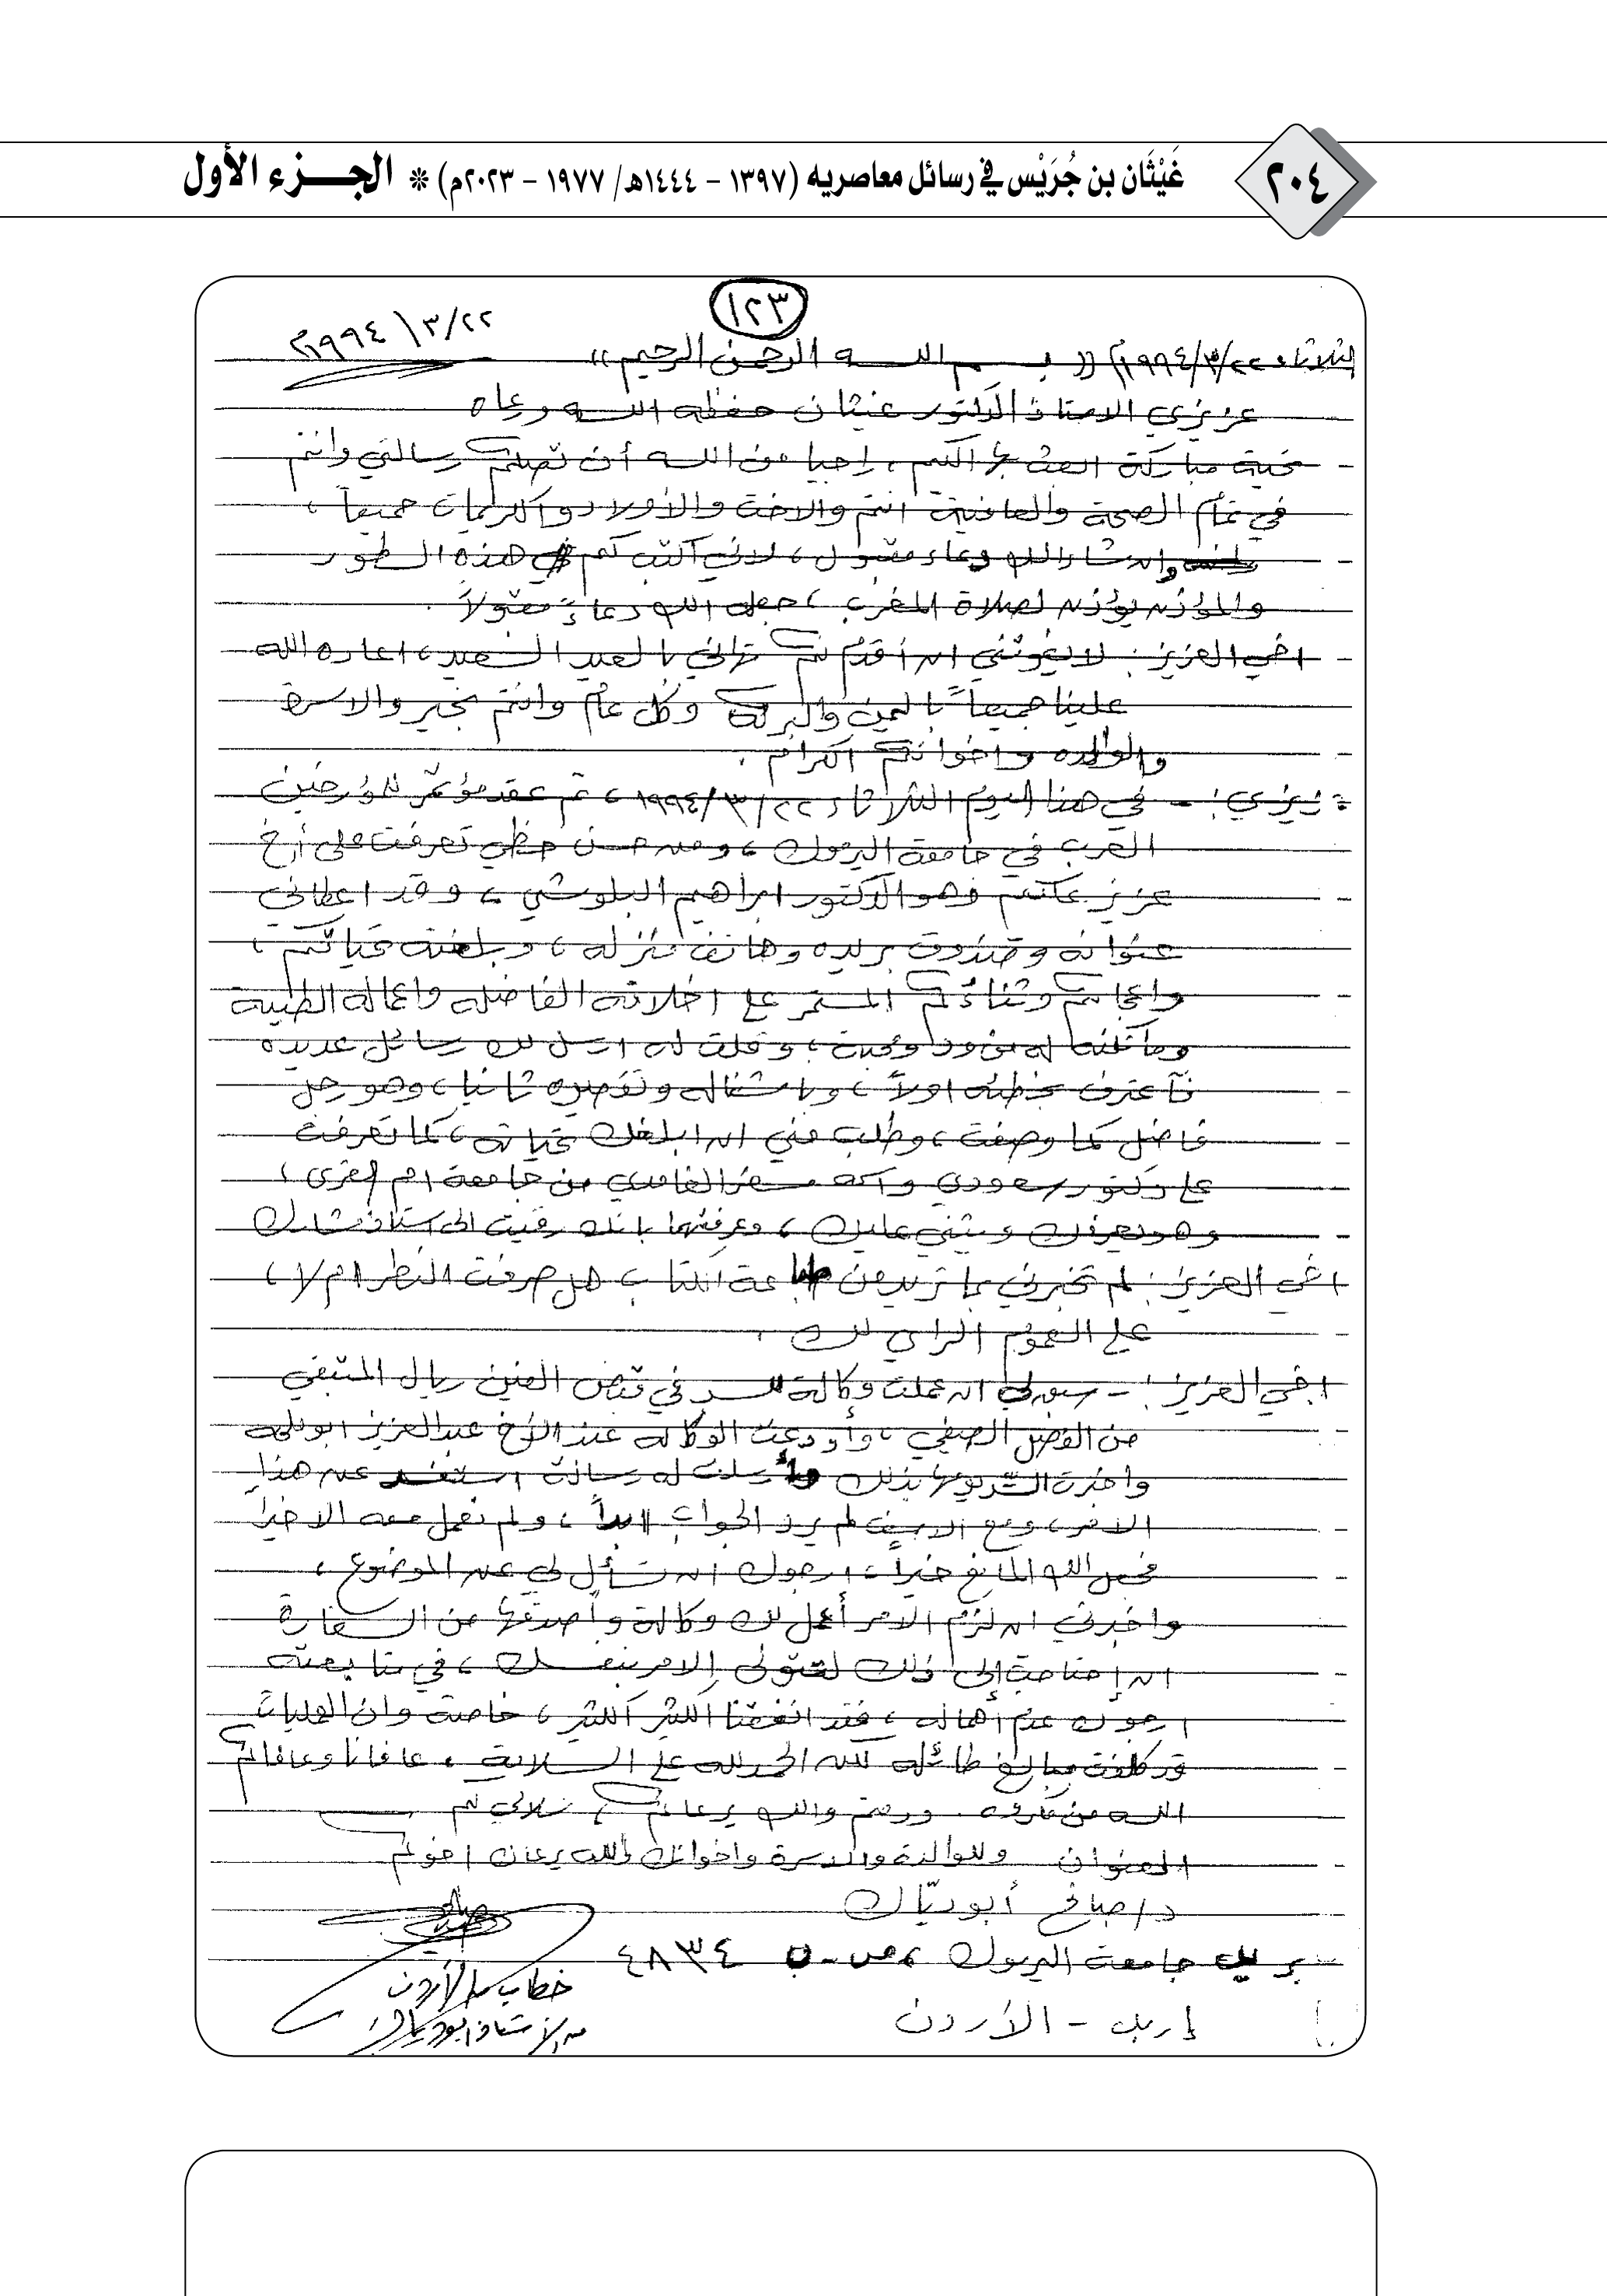 ٢٠٤
غَيْثَان بن جُرَيْس في رسائل معاصريه (١٣٩٧ - ١٤٤٤هـ/ ١٩٧٧ - ٢٠٢٣م) * الجـزء الأول
١٢٣
٢٢/٣/١٩٩٤م
الثلاثاء ٢٢/٣/١٩٩٤م (( بسم اللـه الرحمن الرحيم ))
عزيزي الاستاذ الدكتور غيثان حفظه اللـه ورعاه
تحية مباركة ابعث بها اليكم ، راجيا من اللـه أن تصلكم رسالتي وانتم
في تمام الصحة والعافية انتم والاخت والأولاد والكريمات جميعاً ،
وان شاء الله دعاء مقبول ، لاني اكتب لكم في هذه السطور
والمؤذن يؤذن لصلاة المغرب ، جعل الله دعاءً مقبولاً .
اخي العزيز : لا يفوتني ان أقدم لكم تهاني بالعيد السعيد ، اعاده الله
علينا جميعاً باليمن والبركة وكل عام وانتم بخير والاسرة
والوالده واخوانكم الكرام .
عزيزي :- في هذا اليوم الثلاثاء ٢٢/٣/١٩٩٤ ، تم عقد مؤتمر للمؤرخين
العرب في جامعة اليرموك ، ومن حسن حظي تعرفت على أخ
عزيز عليكم وهو الدكتور ابراهيم البلوشي ، وقد اعطاني
عنوانه وصندوق بريده وهاتف منزله ، وبلغته تحياتكم ،
واعجابكم وثناءكم المستمر على اخلاقه الفاضله واعماله الطيبة
وما تكنه له من ود ومحبة ، وقلت له ارسل لك رسائل عديده
فآعترف بخطئه اولاً ، وبانشغاله وتقصيره ثانيا ، وهو رجل
فاضل كما وصفت ، وطلب مني ان ابلغك تحياته ، كما تعرفت
على دكتور سعودي واسمه مسفر الغامدي من جامعة ام القرى ،
وهو يعرفك ويثني عليك ، وعرفتهما بانك رقيت الى استاذ مشارك
اخي العزيز : لم تخبرني بما تريد من طباعة الكتاب هل صرفت النظر ام لا ،
على العموم الراي لك .
اخي العزيز :- سبق لي ان عملت وكالة في قبض الفين ريال المتبقي
من الفصل الصيفي ، وأودعت الوكاله عند الأخ عبدالعزيز
واخبرت بذلك وأرسلت له رسالة استفسر عن هذا
الامر ، ومع الاسف لم يرد الجواب ابداً ، ولم نعمل معه الا خيراً
ارجوك ان تسأل لي عن الموضوع ،
واخبرني ان لزم الامر أعمل لك وكالة وأصدقها من السفارة
ان إحتاجت إلى ذلك لتتولى الامر بنفسك ، في متابعته
ارجوك عدم اهماله ، فقد انفقنا الكثير الكثير ، خاصة وان العمليات
قد كلفت مبالغ طائله لكن الحمد لله على السلامة ، عافانا وعافاكم
اللـه من كل ودمتم والله يرعاكم ، سلامي لكم
العنوان وللوالدة والاسرة واخوانك والله يرعاك اخوكم
د/ صافي أبو ديّاك
بريد جامعة اليرموك ، ص.ب ٤٨٣٤
إربد - الأردن
خطاب من الأردن
من الأستاذ أبو دياك